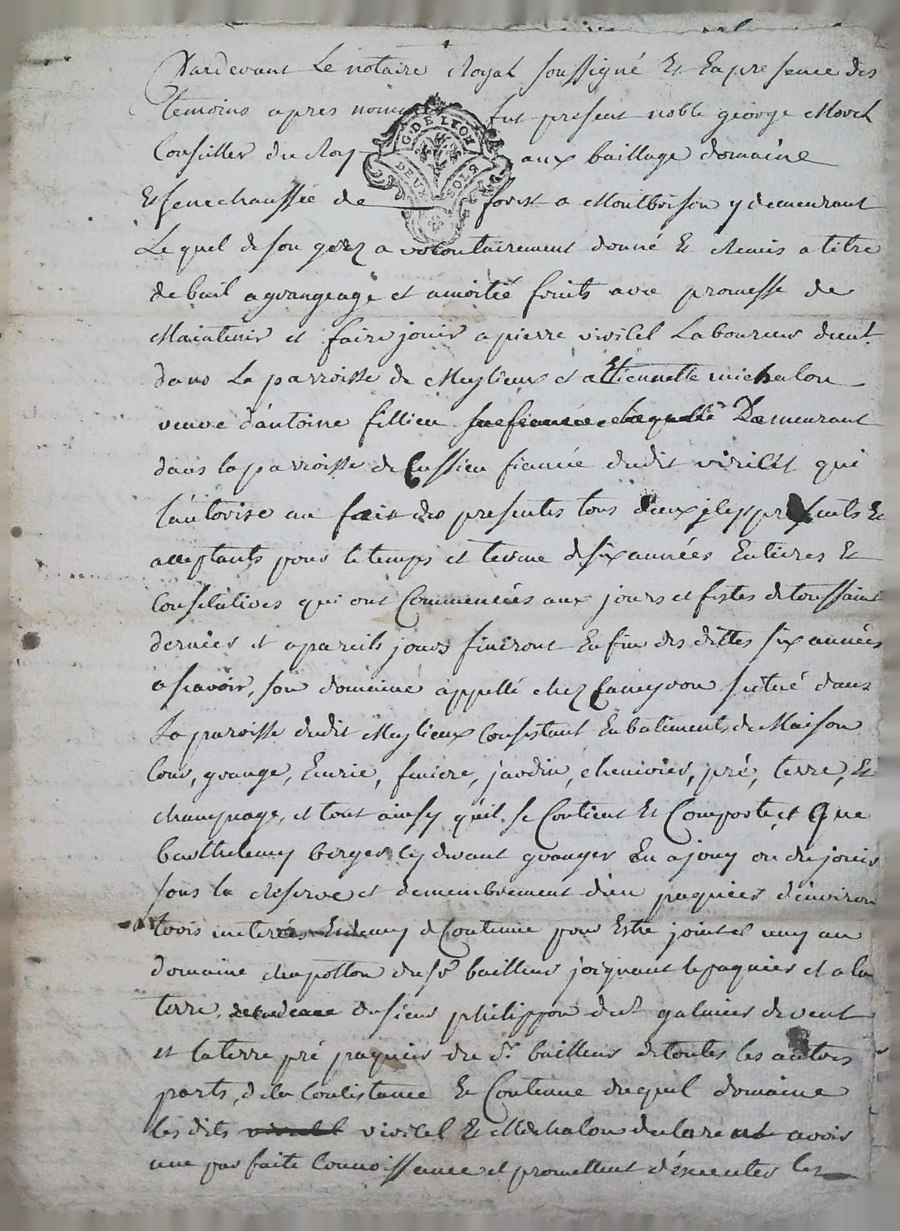 Pardevant Le notaire Royal soussigné Et En presence des
temoins apres nommés fut present noble george Morel
Conseiller du Roy
G. DE LYON
DEUX SOLS
aux bailliage domaine
Et senechaussée de forest a Montbrison y demeurant
Lequel de son gréz a volontairement donné Et Remis a titre
de bail a grangeage et a moitié fruits avec promesse de
Maintenir et faire jouir a pierre virilel Laboureur demt
dans La parroisse de Meylieux et a Etiennette michalon
veuve d'antoine fillieu Demeurant
dans la parroisse de Cussieu fiancée dudit virilel qui
l'autorise au fait des presentes tous deux jcy presents Et
acceptants pour le temps et terme de six années Entieres Et
Consecutives qui ont Commencées aux jours et festes de toussaint
dernier et a pareils jours finiront En fin des dittes six années
a scavoir, son domaine appellé chez Cameyron situé dans
La paroisse dudit Meylieux Consistant En batiments de Maison
Cour, grange, Ecurie, feniere, jardin, chenevier, pré, terre, Et
champeage, et tout ainsy qu'il se Contient Et Comporte, et Que
barthelemy berger cy devant granger En a jouy ou du jouir
sous la Reserve et demembrement d'un paquier d'environ
trois meterées Et demy de Contenue pour Estre joint et uny au
domaine chapotton du sr bailleur joignant le paquier et a la
terre, du sieur philippon de st galmier de vent
et la terre pré paquier du sr bailleur de toutes les autres
parts, de la Consistance Et Contenue duquel domaine
les dits virilel Et Michalon declarent avoir
une parfaite Connoissance et promettent d'éxecuter les